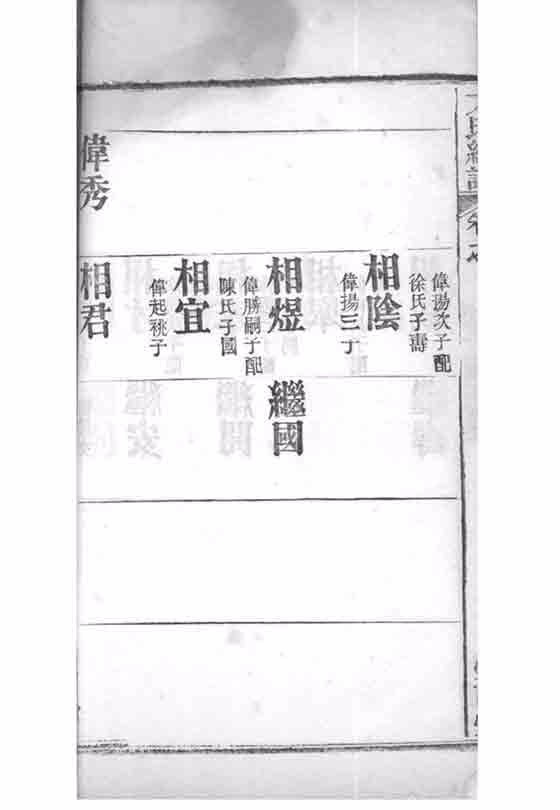 偉瑒次子配
徐氏子壽
相陰
偉揚三丁
相煜
偉勝嗣子配
陳氏子國
繼國
相宜
偉起祧子
偉秀
相君